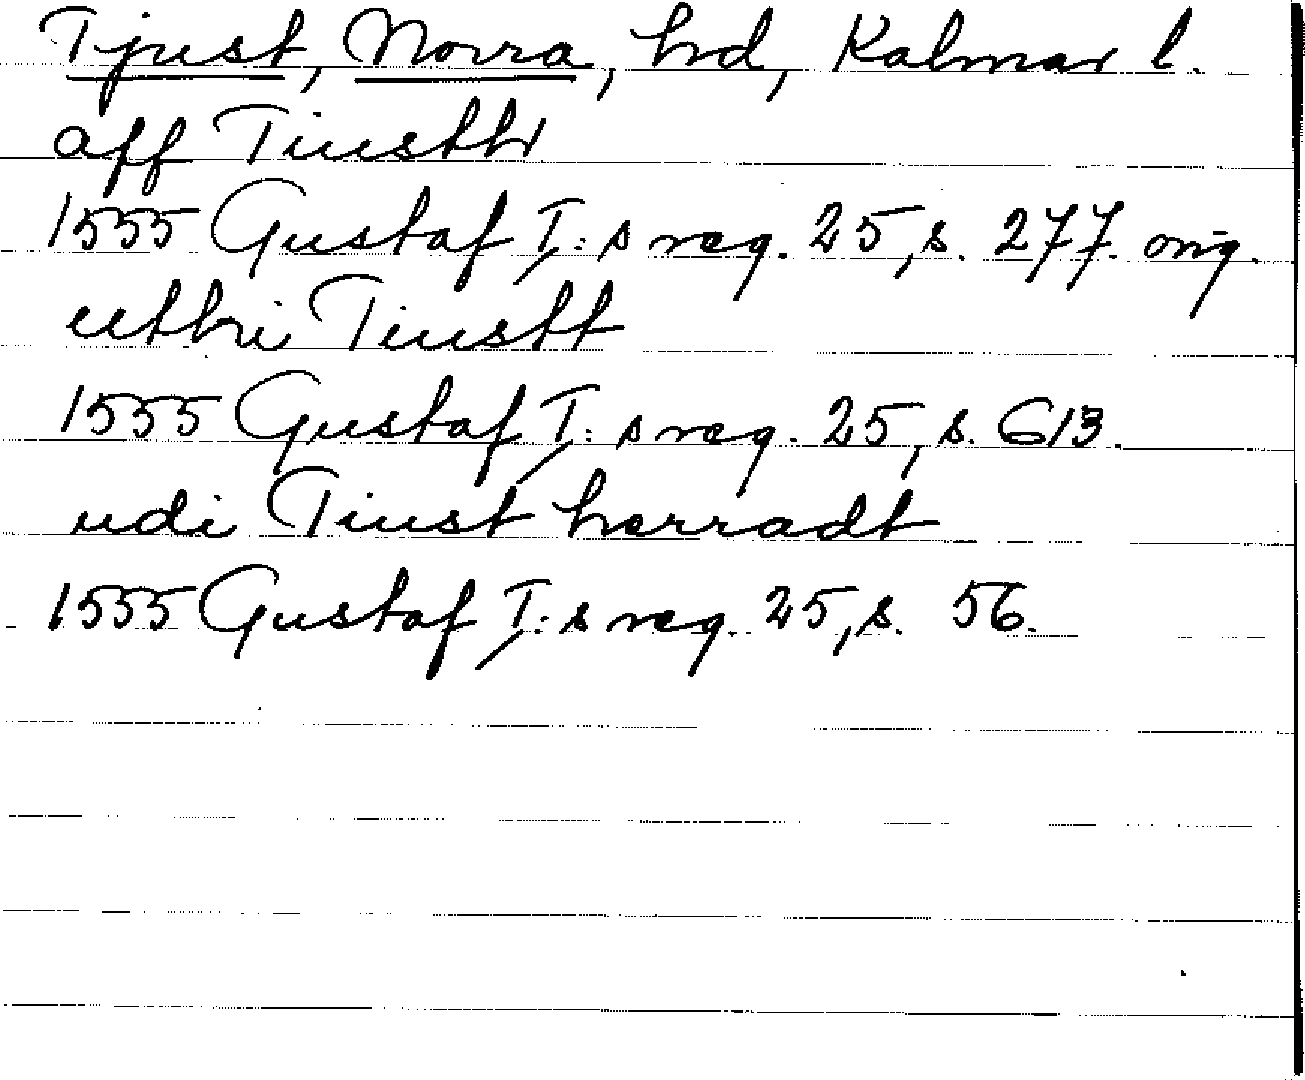 Tjust, Norra, hd, Kalmar l.
aff Tiustth
1555 Gustaf I:s reg. 25, s. 277. orig.
uthi Tiustt
1555 Gustaf I:s reg. 25, s. 613.
udi Tiust herradt
1555 Gustaf I:s reg. 25, s. 56.